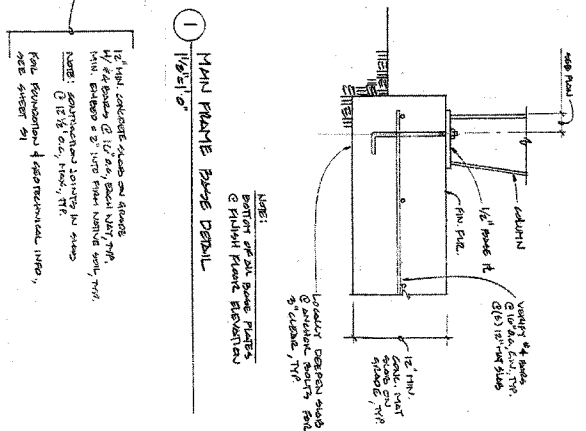 SEE PLAN
COLUMN
1/2" BASE PL
FIN. FLR.
VERIFY #4 BARS
@ 16" O.C., E.W., TYP.
12" MAT SLAB
12" MIN.
CONC. MAT
SLAB ON
GRADE, TYP.
LOCALLY DEEPEN SLAB
@ ANCHOR BOLTS FOR
3" CLEAR, TYP.
NOTE:
BOTTOM OF ALL BASE PLATES
@ FINISH FLOOR ELEVATION
1
MAIN FRAME BASE DETAIL
12" MIN. CONCRETE SLAB ON GRADE
W/ #4 BARS @ 16" O.C., EACH WAY, TYP.
MIN. EMBED = 2" INTO FIRM NATIVE SOIL, TYP.
NOTE: CONTRACTION JOINTS IN SLAB
@ 12 1/2' O.C., MAX., TYP.
FOR FOUNDATION & GEOTECHNICAL INFO.,
SEE SHEET S1